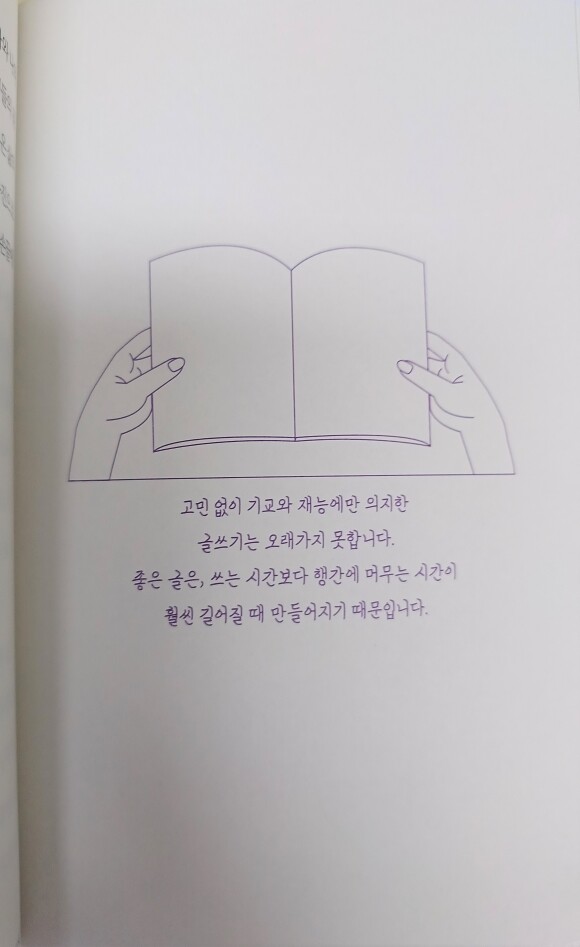 고민 없이 기교와 재능에만 의지한
글쓰기는 오래가지 못합니다.
좋은 글은, 쓰는 시간보다 행간에 머무는 시간이
훨씬 길어질 때 만들어지기 때문입니다.